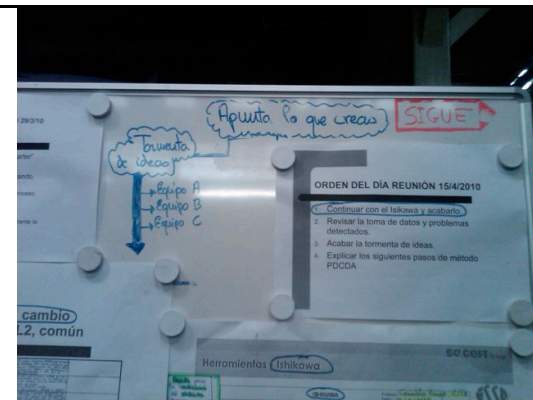 29/3/10
Apunta lo que creas
SIGUE
Tormenta
de ideas
Equipo A
Equipo B
Equipo C
ORDEN DEL DÍA REUNIÓN 15/4/2010
1. Continuar con el Isikawa y acabarlo.
2. Revisar la toma de datos y problemas
detectados.
3. Acabar la tormenta de ideas.
4. Explicar los siguientes pasos de método
PDCDA
cambio
L2, común
Herramientas Ishikawa